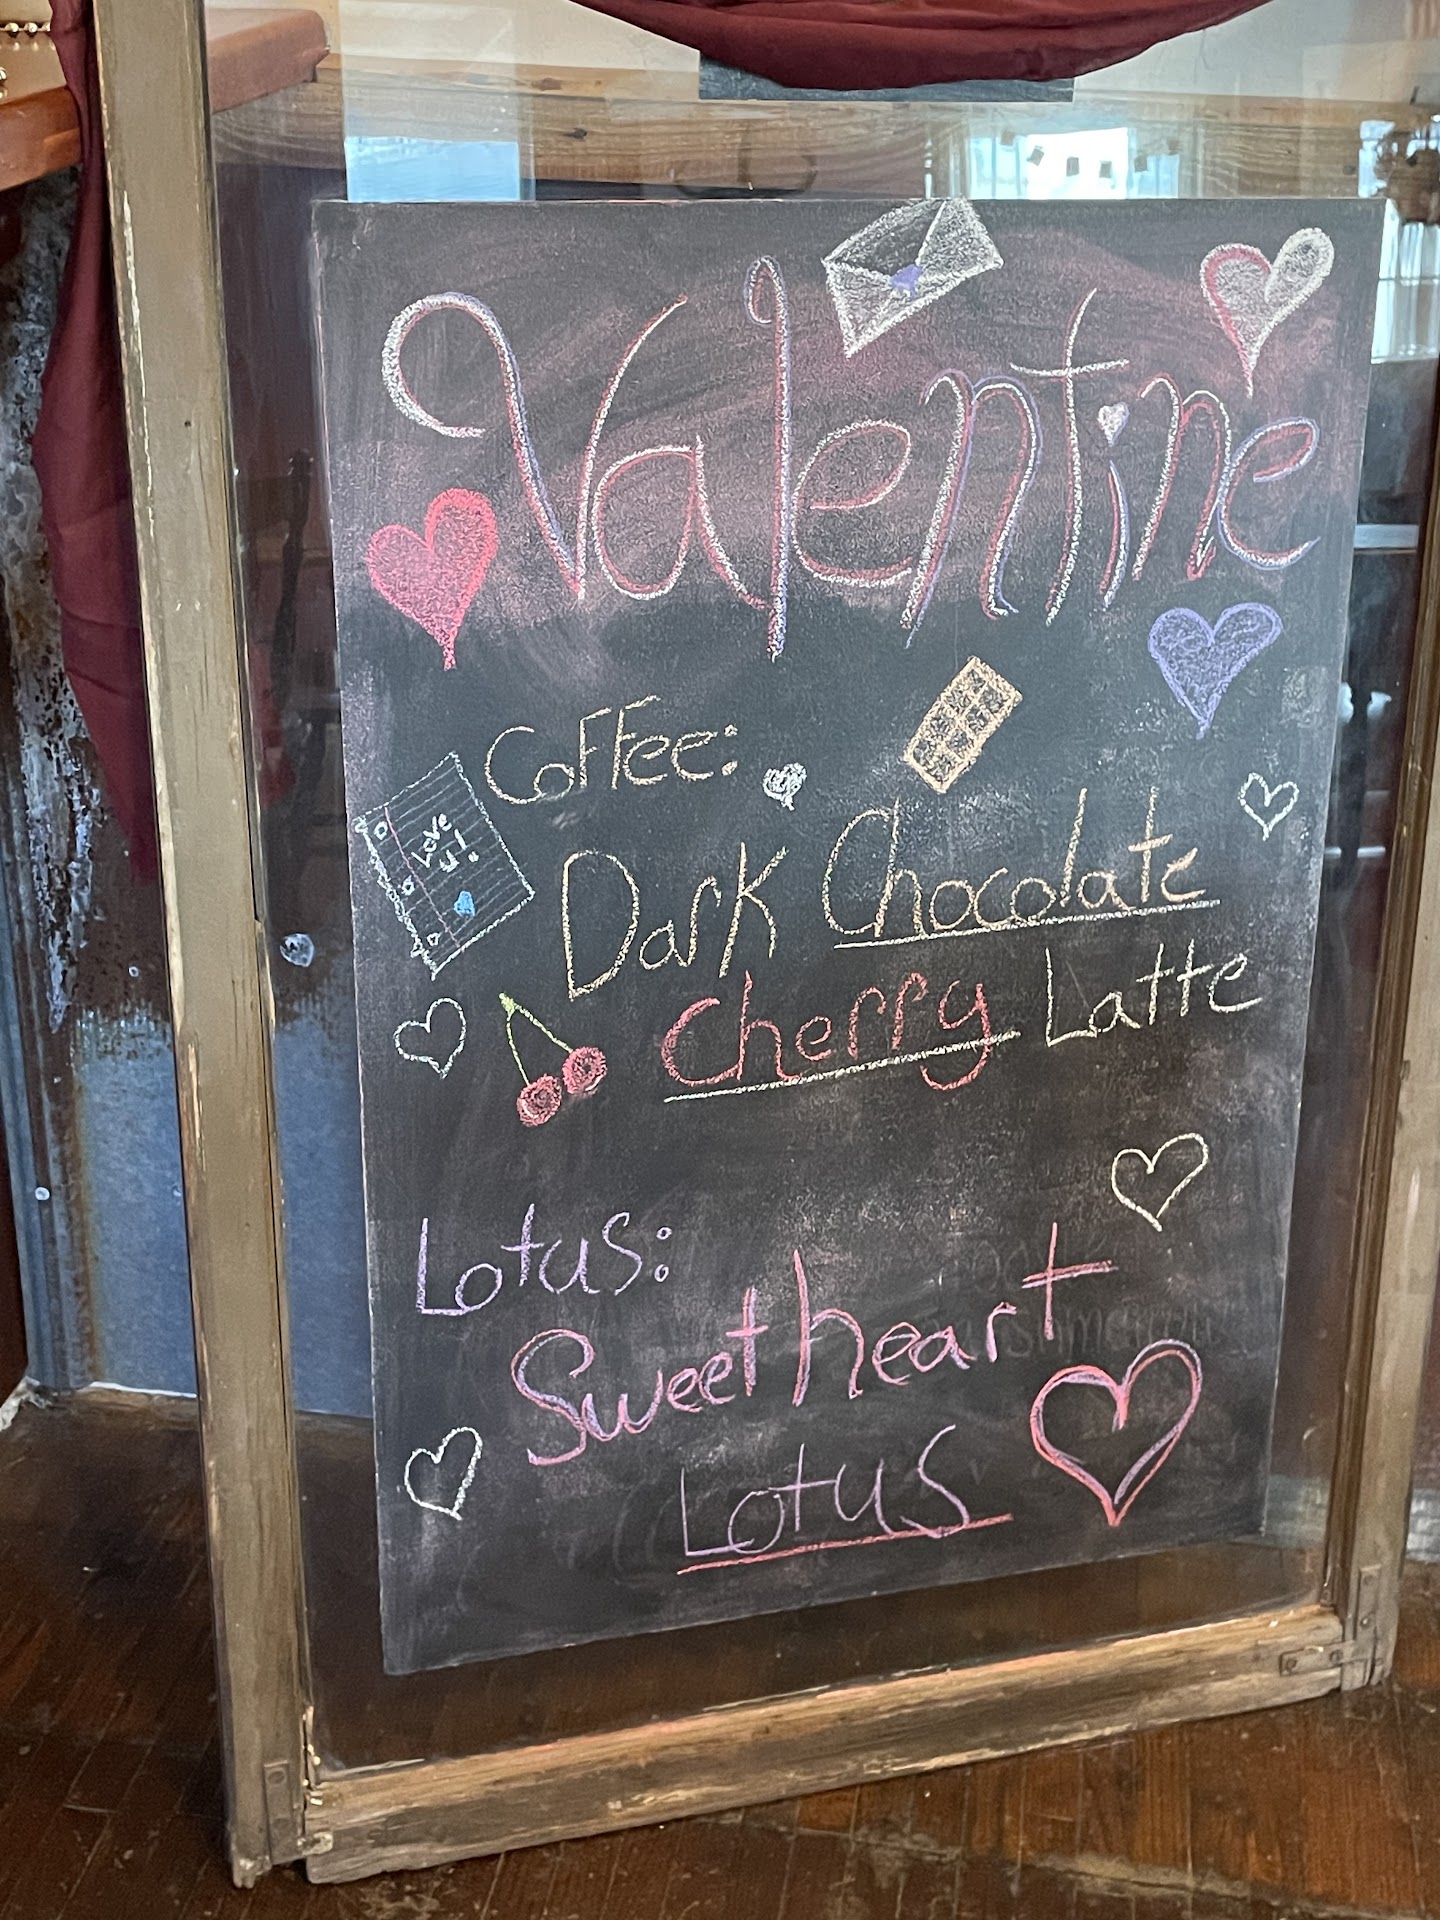 Valentine
Coffee:
Love
u!
Dark Chocolate
Cherry Latte
Lotus:
Sweetheart
Lotus